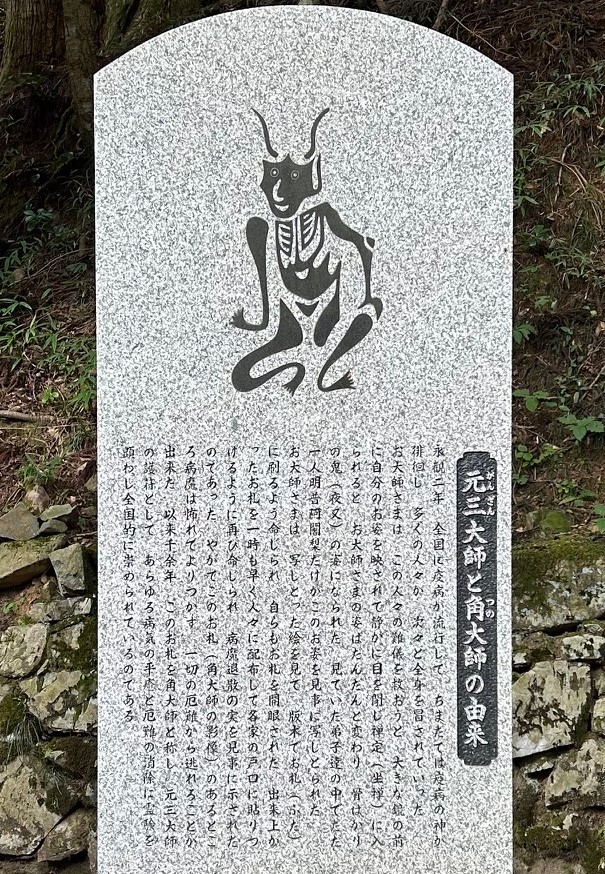 元三大師と角大師の由来
がんざん
つの
永観二年 全国に疫病が流行して ちまたでは疫病の神が
徘徊し 多くの人々が 次々と全身を冒されていった
お大師さまは この人々の難儀を救おうと 大きな鏡の前
に自分のお姿を映されて静かに目を閉じ禅定(坐禅)に入
られると お大師さまの姿はだんだんと変わり 骨ばかり
の鬼(夜叉)の姿になられた 見ていた弟子達の中でただ
一人明普阿闍梨だけがこのお姿を見事に写しとられた
お大師さまは 写しとった絵を見て 版木でお札(ふだ)
に刷るよう命じられ 自らもお札を開眼された 出来上が
ったお札を一時も早く人々に配布して各家の戸口に貼りつ
けるように再び命じられ 病魔退散の実を見事に示された
のであった やがてこのお札(角大師の影像)のあるとこ
ろ病魔は怖れてよりつかず 一切の厄難から逃れることが
出来た 以来千余年 このお札を角大師と称し 元三大師
の護符として あらゆる病気の平癒と厄難の消除に霊験を
顕わし全国的に崇められているのである